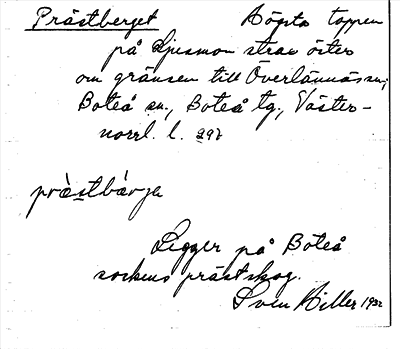 Prästberget Högsta toppen
på Ljusmon strax öster
om gränsen till Överlännäs sn,
Boteå sn, Boteå tg, Väster-
norrl. l.
prästbärja
Ligger på Boteå
sockens prästskog.
Sven Hiller 1932